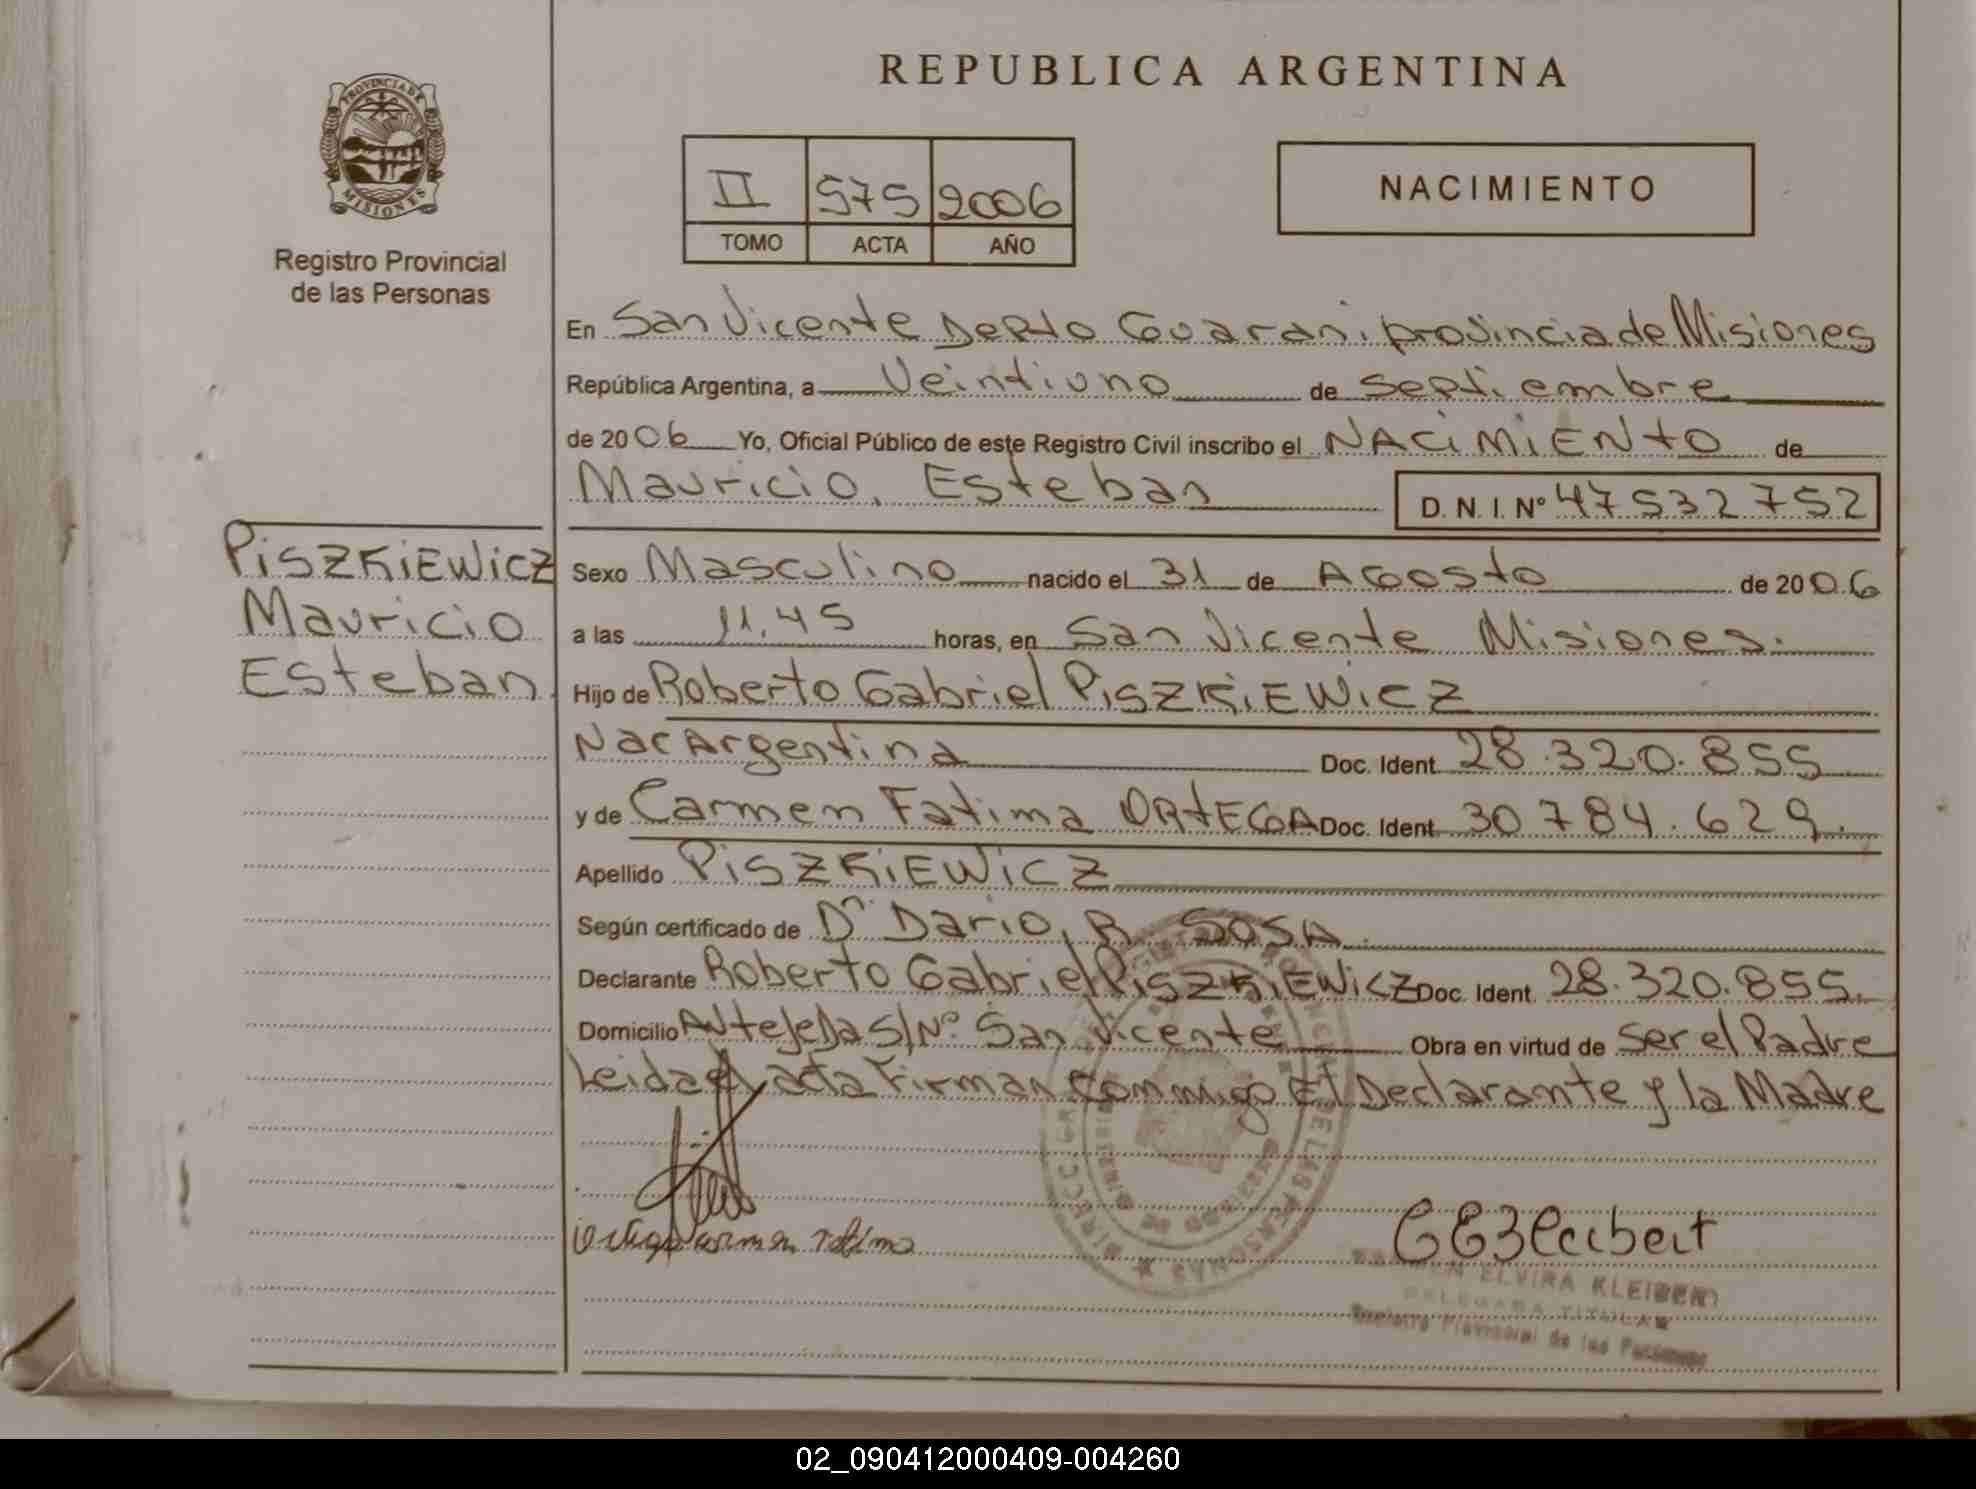 REPUBLICA ARGENTINA
PROVINCIA DE
MISIONES
Registro Provincial
de las Personas
II 575 2006
TOMO ACTA AÑO
NACIMIENTO
En San Vicente Depto Guarani provincia de Misiones
República Argentina, a Veintiuno de Septiembre
de 2006 Yo, Oficial Público de este Registro Civil inscribo el NACiMiENto de
Mauricio, Esteban D. N. I. Nº 47532752
PiSZKiEWicZ
Mauricio
Esteban
Sexo Masculino nacido el 31 de AGosto de 2006
a las 11.45 horas, en San Vicente Misiones.
Hijo de Roberto Gabriel PiSZKiEWicZ
Nac Argentina Doc. Ident. 28.320.855
y de Carmen Fatima ORtEGA Doc. Ident. 30784.629.
Apellido PiSZKiEWicZ
Según certificado de Dr Dario, R. SOSA
Declarante Roberto Gabriel PiSZKiEWicZ Doc. Ident. 28.320.855.
Domicilio S/Nº San Vicente Obra en virtud de Ser el Padre
Leida el acta Firman conmigo El Declarante y la Madre
ELVIRA KLEIBER
DELEGADA TITULAR
Registro Provincial de las Personas
02_090412000409-004260